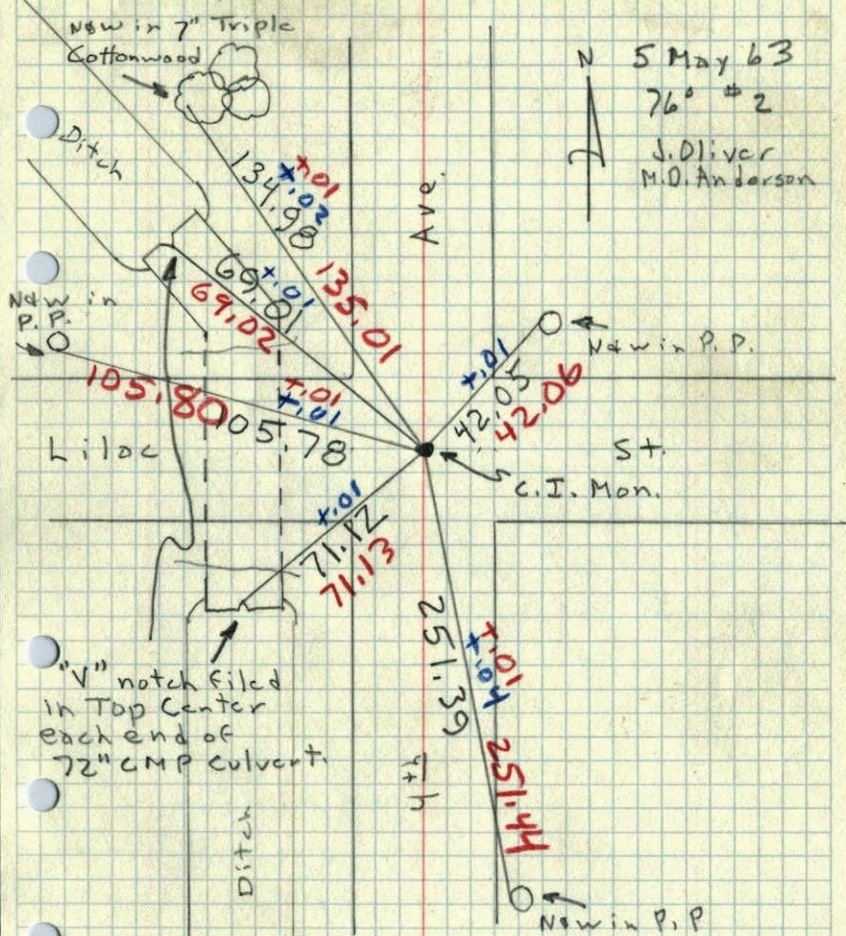 N&W in 7" Triple
Cottonwood
N
5 May 63
76° #2
J. Oliver
M.D. Anderson
Ditch
Ave.
+.01
+.02
134.98
135.01
+.01
69.01
69.02
N&W in
P.P.
105.80
+.01
+.01
105.78
+.01
42.05
42.06
N&W in P.P.
Lilac
St.
C.I. Mon.
+.01
71.12
71.13
251.39
+.01
+.04
251.44
"V" notch filed
in Top Center
each end of
72" CMP Culvert.
4th
Ditch
N&W in P.P